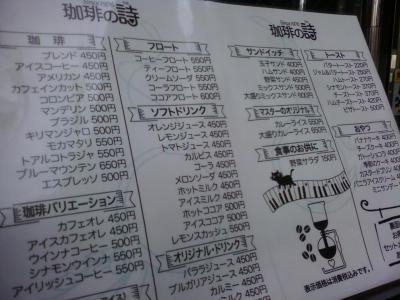 珈琲の詩
珈琲
ブレンド 450円
アイスコーヒー 450円
アメリカン 450円
カフェインカット 500円
コロンビア 500円
マンデリン 500円
ブラジル 500円
キリマンジャロ 500円
モカマタリ 550円
トアルコトラジャ 550円
ブルーマウンテン 650円
エスプレッソ 500円
珈琲バリエーション
カフェオレ 450円
アイスカフェオレ 450円
ウインナコーヒー 500円
シナモンウインナ 550円
アイリッシュコーヒー
フロート
コーヒーフロート 550円
ティーフロート 550円
クリームソーダ 550円
コーラフロート 550円
ココアフロート 600円
ソフトドリンク
オレンジジュース 450円
レモンジュース 450円
トマトジュース 450円
カルピス 450円
コーラ 450円
メロンソーダ 450円
ホットミルク 450円
アイスミルク 450円
ホットココア 500円
アイスココア 500円
レモンスカッシュ 550円
オリジナル・ドリンク
パララジュース 450円
ブルガリアジュース 450円
カルミー 450円
珈琲の詩
サンドイッチ
玉子サンド 400円
ハムサンド 400円
野菜サンド 450円
ミックスサンド 500円
大盛りミックスサンド
マスターのオリジナル
カレーライス 650円
大盛りカレーライス
食事のお供に
野菜サラダ 150円
表示価格は消費税込みです。
トースト
バタートースト
ジャム&バタートースト
シナモントースト
チーズトースト
ハムチーズトースト
ピザトースト
おやつ
バナナケーキ
チーズケーキ